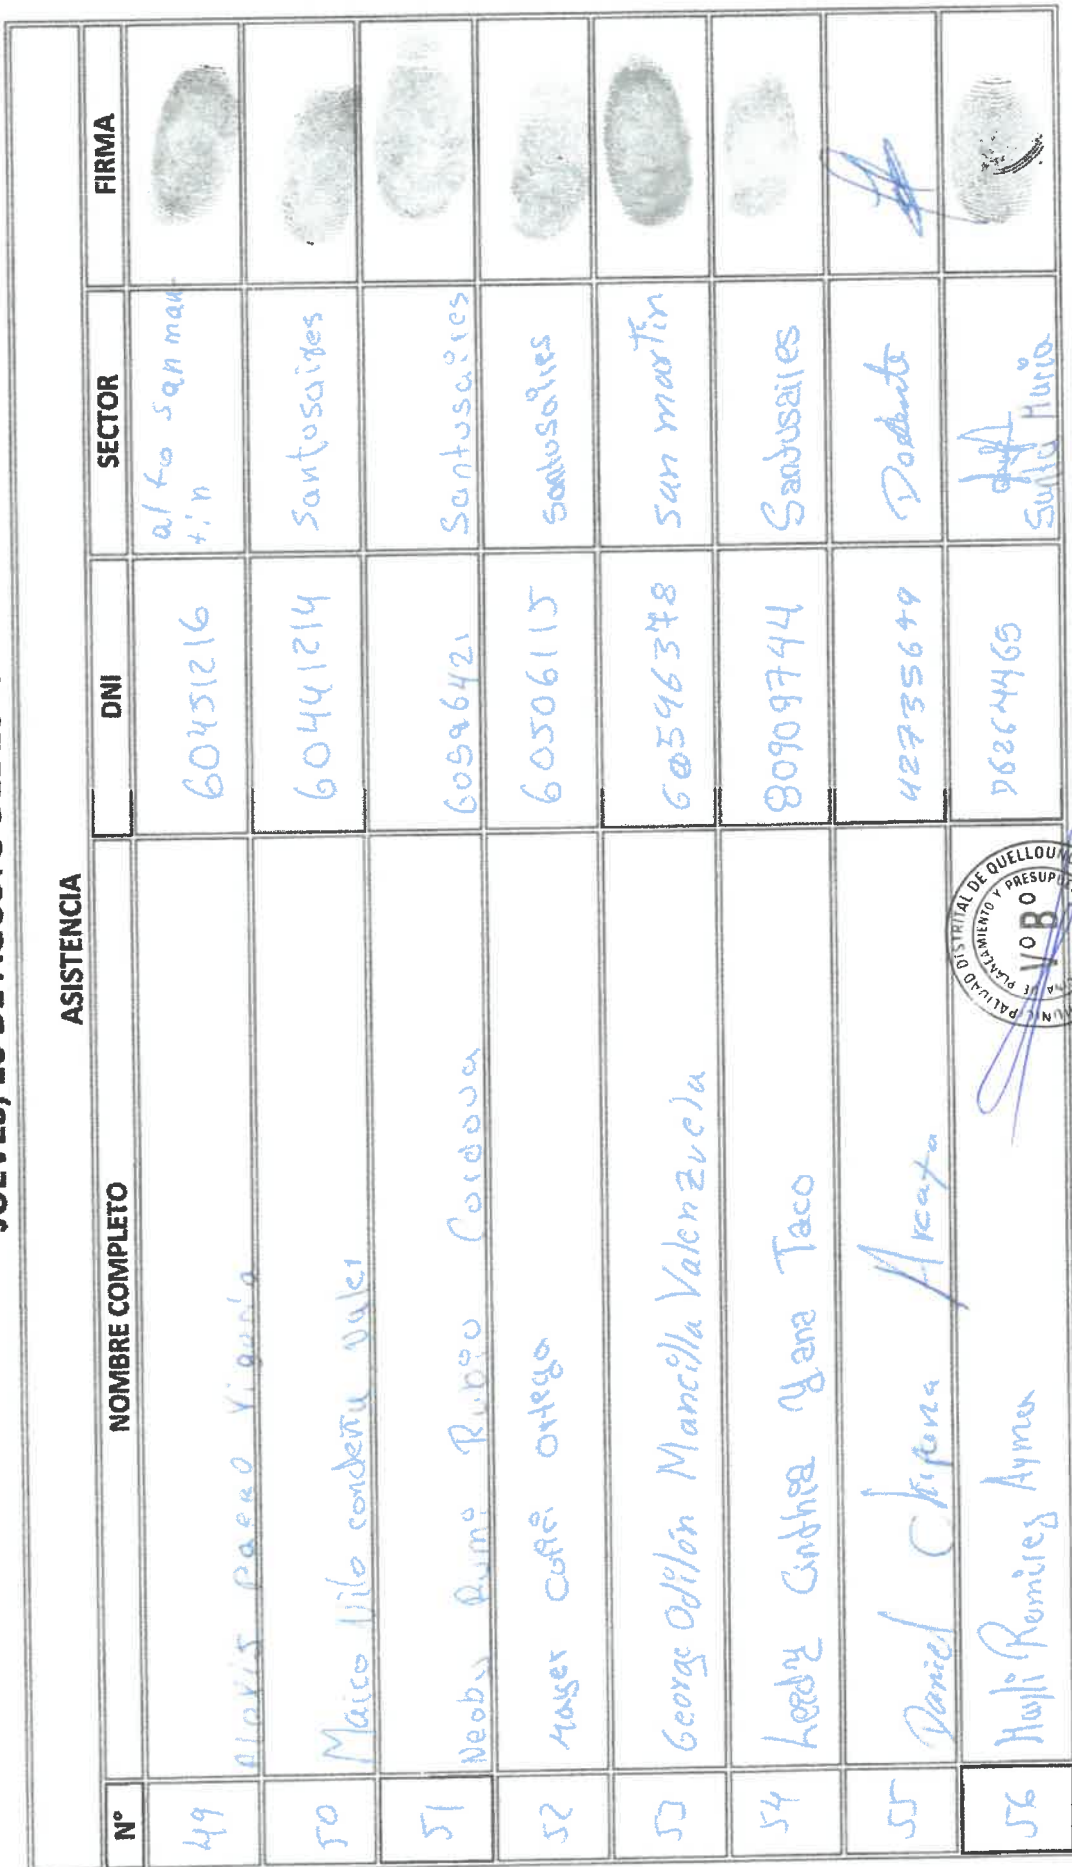 ASISTENCIA
N° NOMBRE COMPLETO DNI SECTOR FIRMA
49 60451216 alto san mar
tin
50 Maico Nilo condeña valer 60441214 Santusaires
51 Rumi Rubio Cordova Santusaires
52 Mayer Ortega 60506115 Santusaires
53 George Odilón Mancilla Valenzuela 60596378 san martin
54 Leedy Cinthia Yana Taco 80909744 Santusaires
55 Daniel Chipana Arcaya 42735649
56 Ramirez Ayma Maria
MUNICIPALIDAD DISTRITAL DE QUELLOUN
DE PLANEAMIENTO Y PRESUPU
V° B°